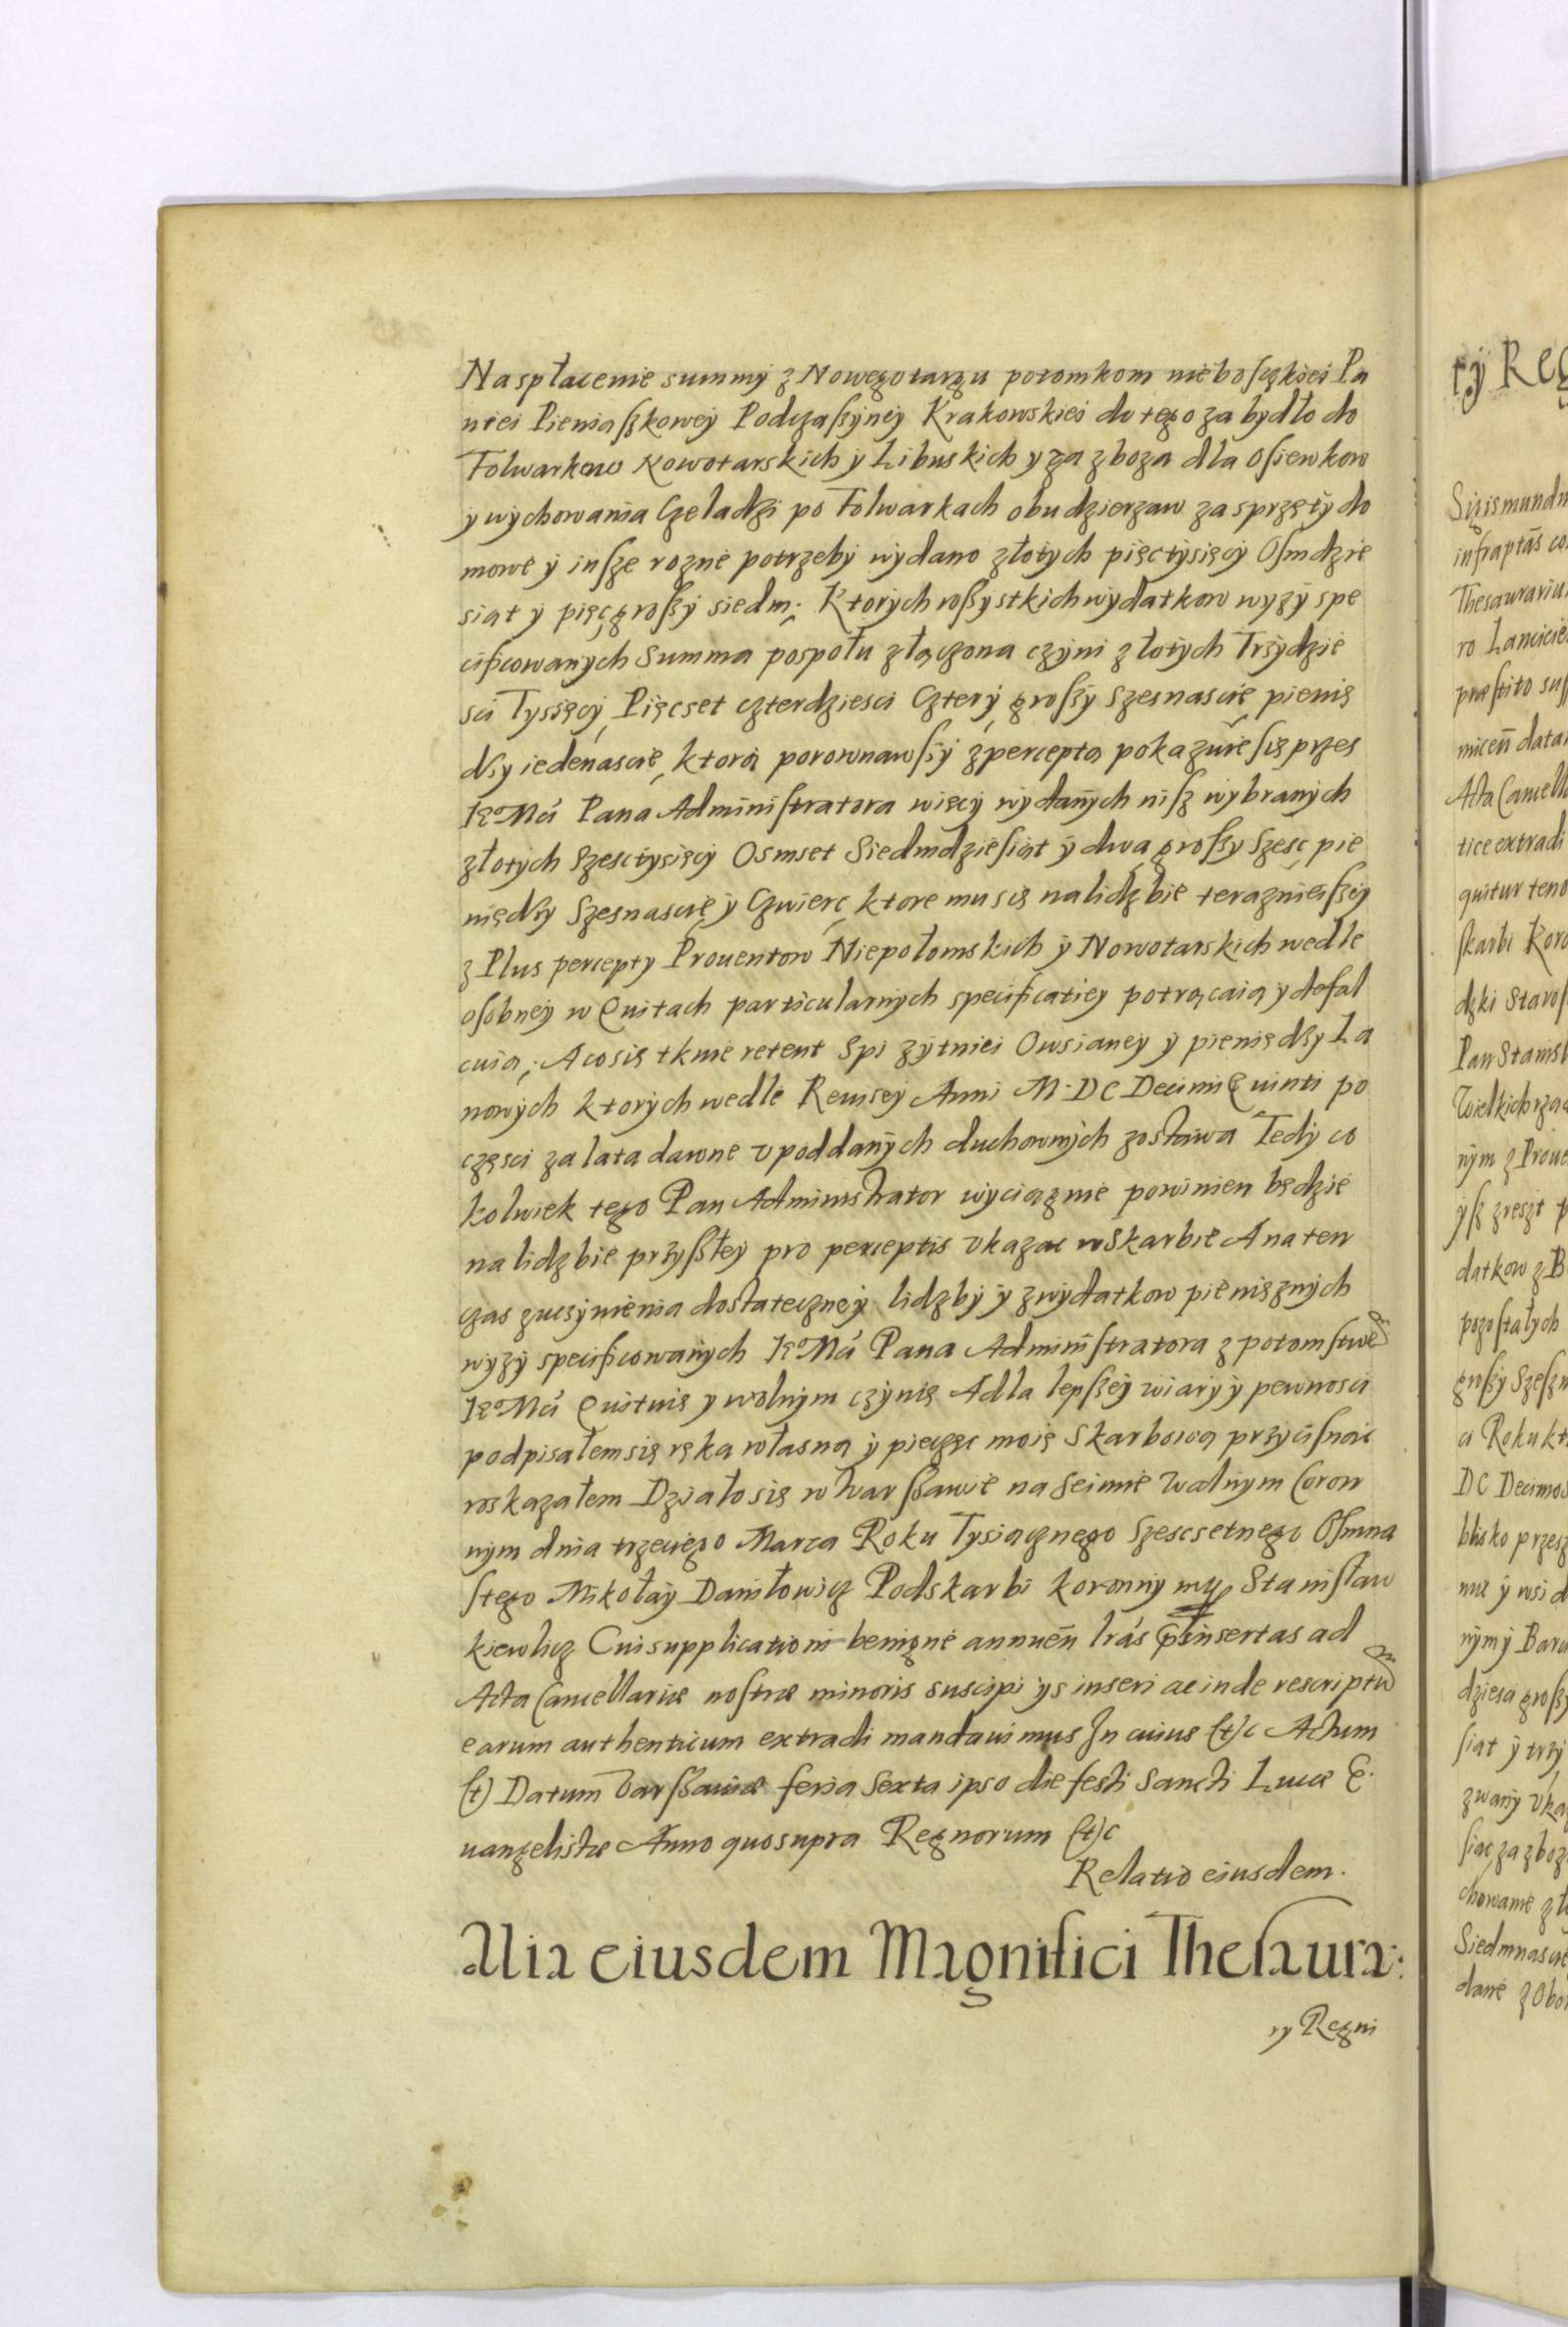 Na spłacenie summy z Nowegotargu potomkom nieboſzkiei Pa
niei Pieniaſzkowey Podczaſzyney Krakowskiei do tego za bydło do
Folwarkow Nowotarskich y Libuskich y za zboza dla oſiewkow
y wychowania Czeladzi po Folwarkach obu dzierzaw za sprzęty do
mowe y inſze rozne potrzeby wydano złotych pięctysięcy Oſmdzie
siąt y pięc groſzy siedm; Ktorych wſzystkich wydatkow wyzy spe
cificowanych Summa pospołu złączona czyni złotych Trzydzie
sci Tyssięcy Pięcset czterdziesci Cztery groſzy Szesnascie pienię
dzy iedenascie, ktorą porownawſzy z perceptą pokazuie ſię przes
Ie° Mci Pana Adminiſtratora więcy wydanych niſz wybranych
złotych Szesctysięcy Osmset Siedmdzieſiąt y dwa groſzy Szesc pie
niędzy Szesnascie y Czwierc, ktore mu się na lidzbie terazneiſzey
z Plus percepty Prouentow Niepołomskich y Nowotarskich wedle
oſobney w Quitach particularnych specificatiey potrącaią y defal
cuią; A co się tknie retent Spi zytniei Owsianey y pieniędzy La
nowych ktorych wedle Reuisey Anni M.DC Decimi Quinti po
częsci za lata dawne v poddanych duchownych zostawa Tedy co
kolwiek tego Pan Administrator wyciągnie powinien będzie
na lidzbie przyſzłey pro perceptis vkazac w Skarbie A na ten
czas z uczynienia dostateczney lidzby y z wydatkow pieniężnych
wyzy specificowanych Ie° Mci Pana Adminiſtratora z potomſtwē
Ie° Mci Quituię y wolnym czynię A dla lepſzey wiary y pewnosci
podpisałem się ręka własną y pieczęc moię Skarbową przyciſnąc
roskazałem Działo się w Warſzawie na Seimie Walnym Coron
nym dnia trzeciego Marca Roku Tysiącznego Szescsetnego Oſmna
ſtego Mikołay Daniłowicz Podskarbi koronny mp Staniſław
kiewlicz Cui supplicationi benigne annuen̄ lr̄as p̄tinsertas ad
Acta Cancellariæ noſtræ minoris suscipi ijs inseri ac inde rescriptū
earum authenticum extradi mandauimus In cuius (et)c Actum
(et) Datum Varſzauiæ feria Sexta ipso die festi Sancti Lucæ E
uangelistæ Anno quo supra Regnorum (et)c
Relatio eiusdem.
Alia eiusdem Magnifici Theſaura:
ry Regni
ry Reg
Sigismundu
infraptās co
Thesauraria
ro Lancicie
præſtito
micen̄ data
Acta Cancella
tice extradi
quitur teno
ſkarbi Koro
dzki Staroſ
Pan Stanisł
Wielkich
nym z Proue
yſz zreszt p
datkow z B
pozoſtałych
groſzy Szeſzn
ci Roku kt
DC Decimo
blisko przesz
nie y wsi d
nymy Bara
dziesci groſzy
ſiąt y trzy
zwany vka
za zboz
chowanie zł
Siedmnascie
dane z Obo